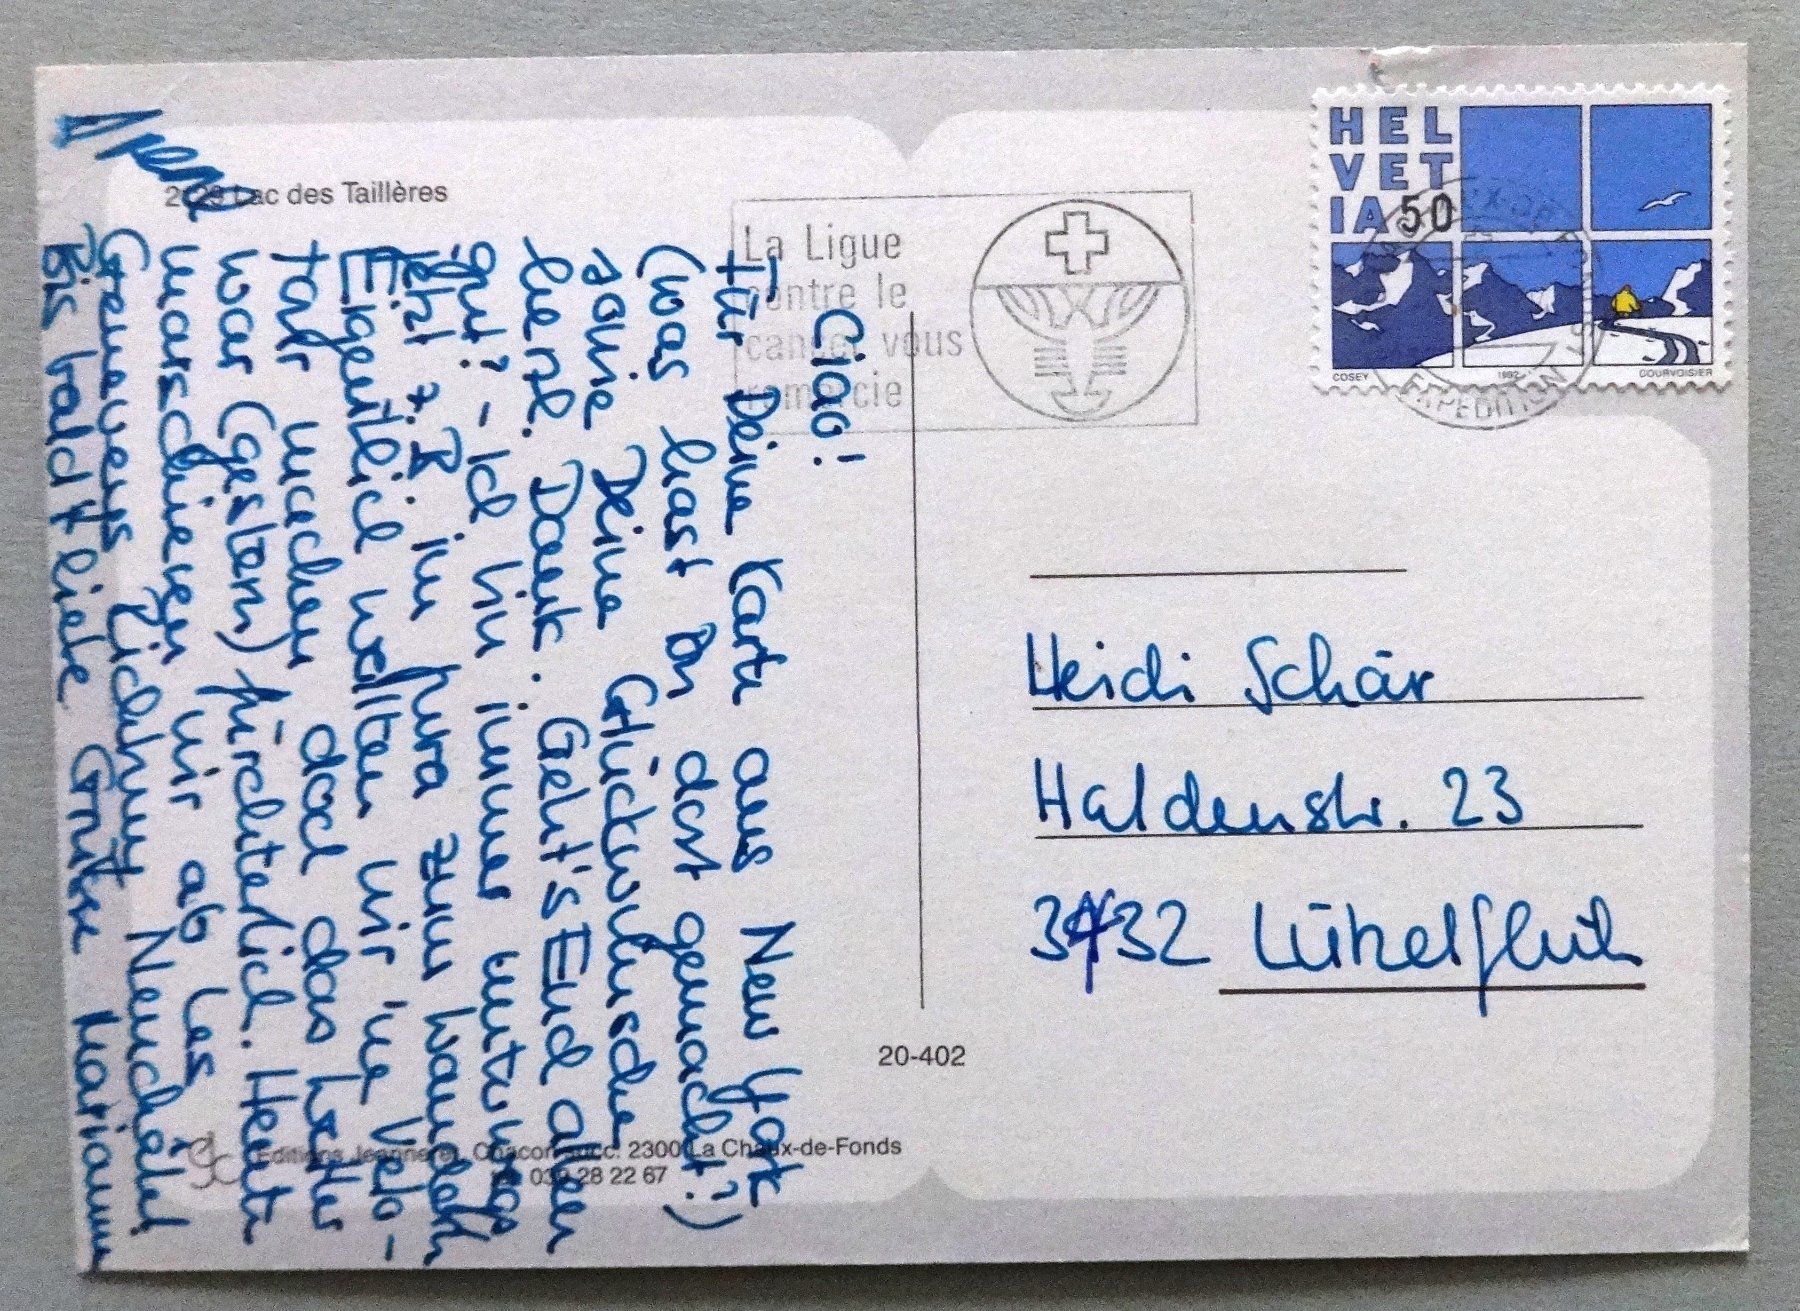 2129 Lac des Taillères
Ciao!
Für Deine Karte aus New York
(was hast Du dort gemacht?)
sowie Deine Glückwünsche
herzl. Dank. Geht's Euch allen
gut? - Ich bin immer unterwegs
jetzt z.B. im Jura zum Wandern
Eigentlich wollten wir ne Velo-
tour machen doch das Wetter
war (gestern) fürchterlich. Heute
marschieren wir ab Les
Geneveys Richtung Neuchâtel
Bis bald & liebe Grüsse Marianne
La Ligue
contre le
cancer vous
remercie
HEL
VET
IA 50
COSEY 1992 COURVOISIER
EXPEDITION
Heidi Schär
Haldenstr. 23
3432 Lützelflüh
20-402
Editions Jeanneret, Chacon succ. 2300 La Chaux-de-Fonds
tél. 039 28 22 67